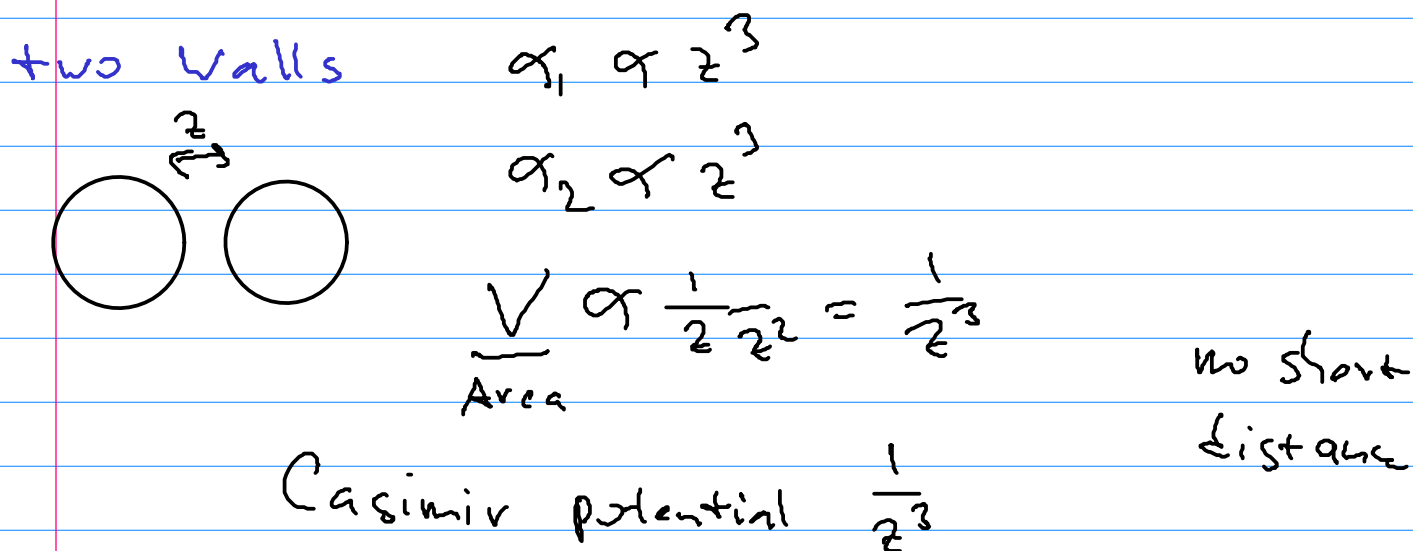 two walls α₁ ∝ z³
z
α₂ ∝ z³
V/Area ∝ 1/z 1/z² = 1/z³
no short
distance
Casimir potential 1/z³